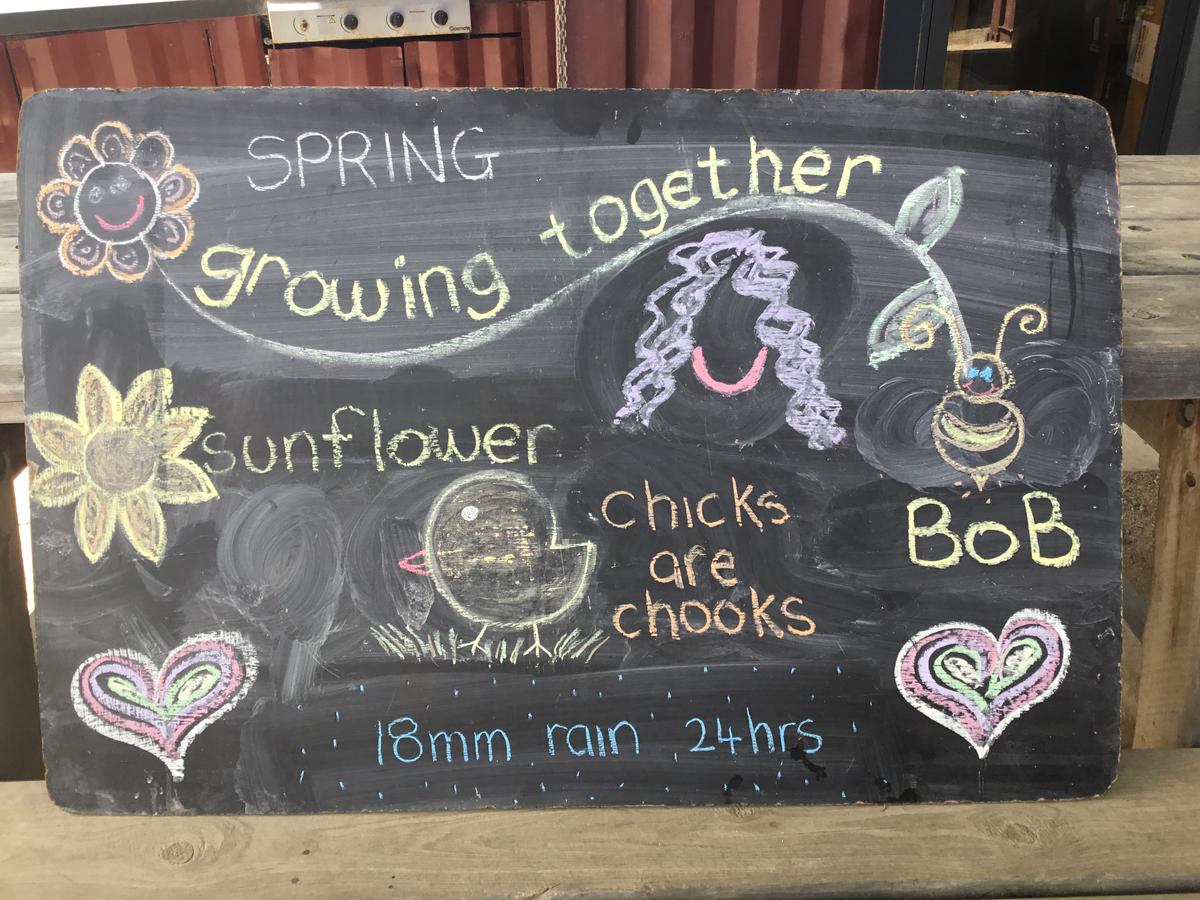 SPRING
growing together
sunflower
chicks
are
chooks
BoB
18mm rain 24hrs